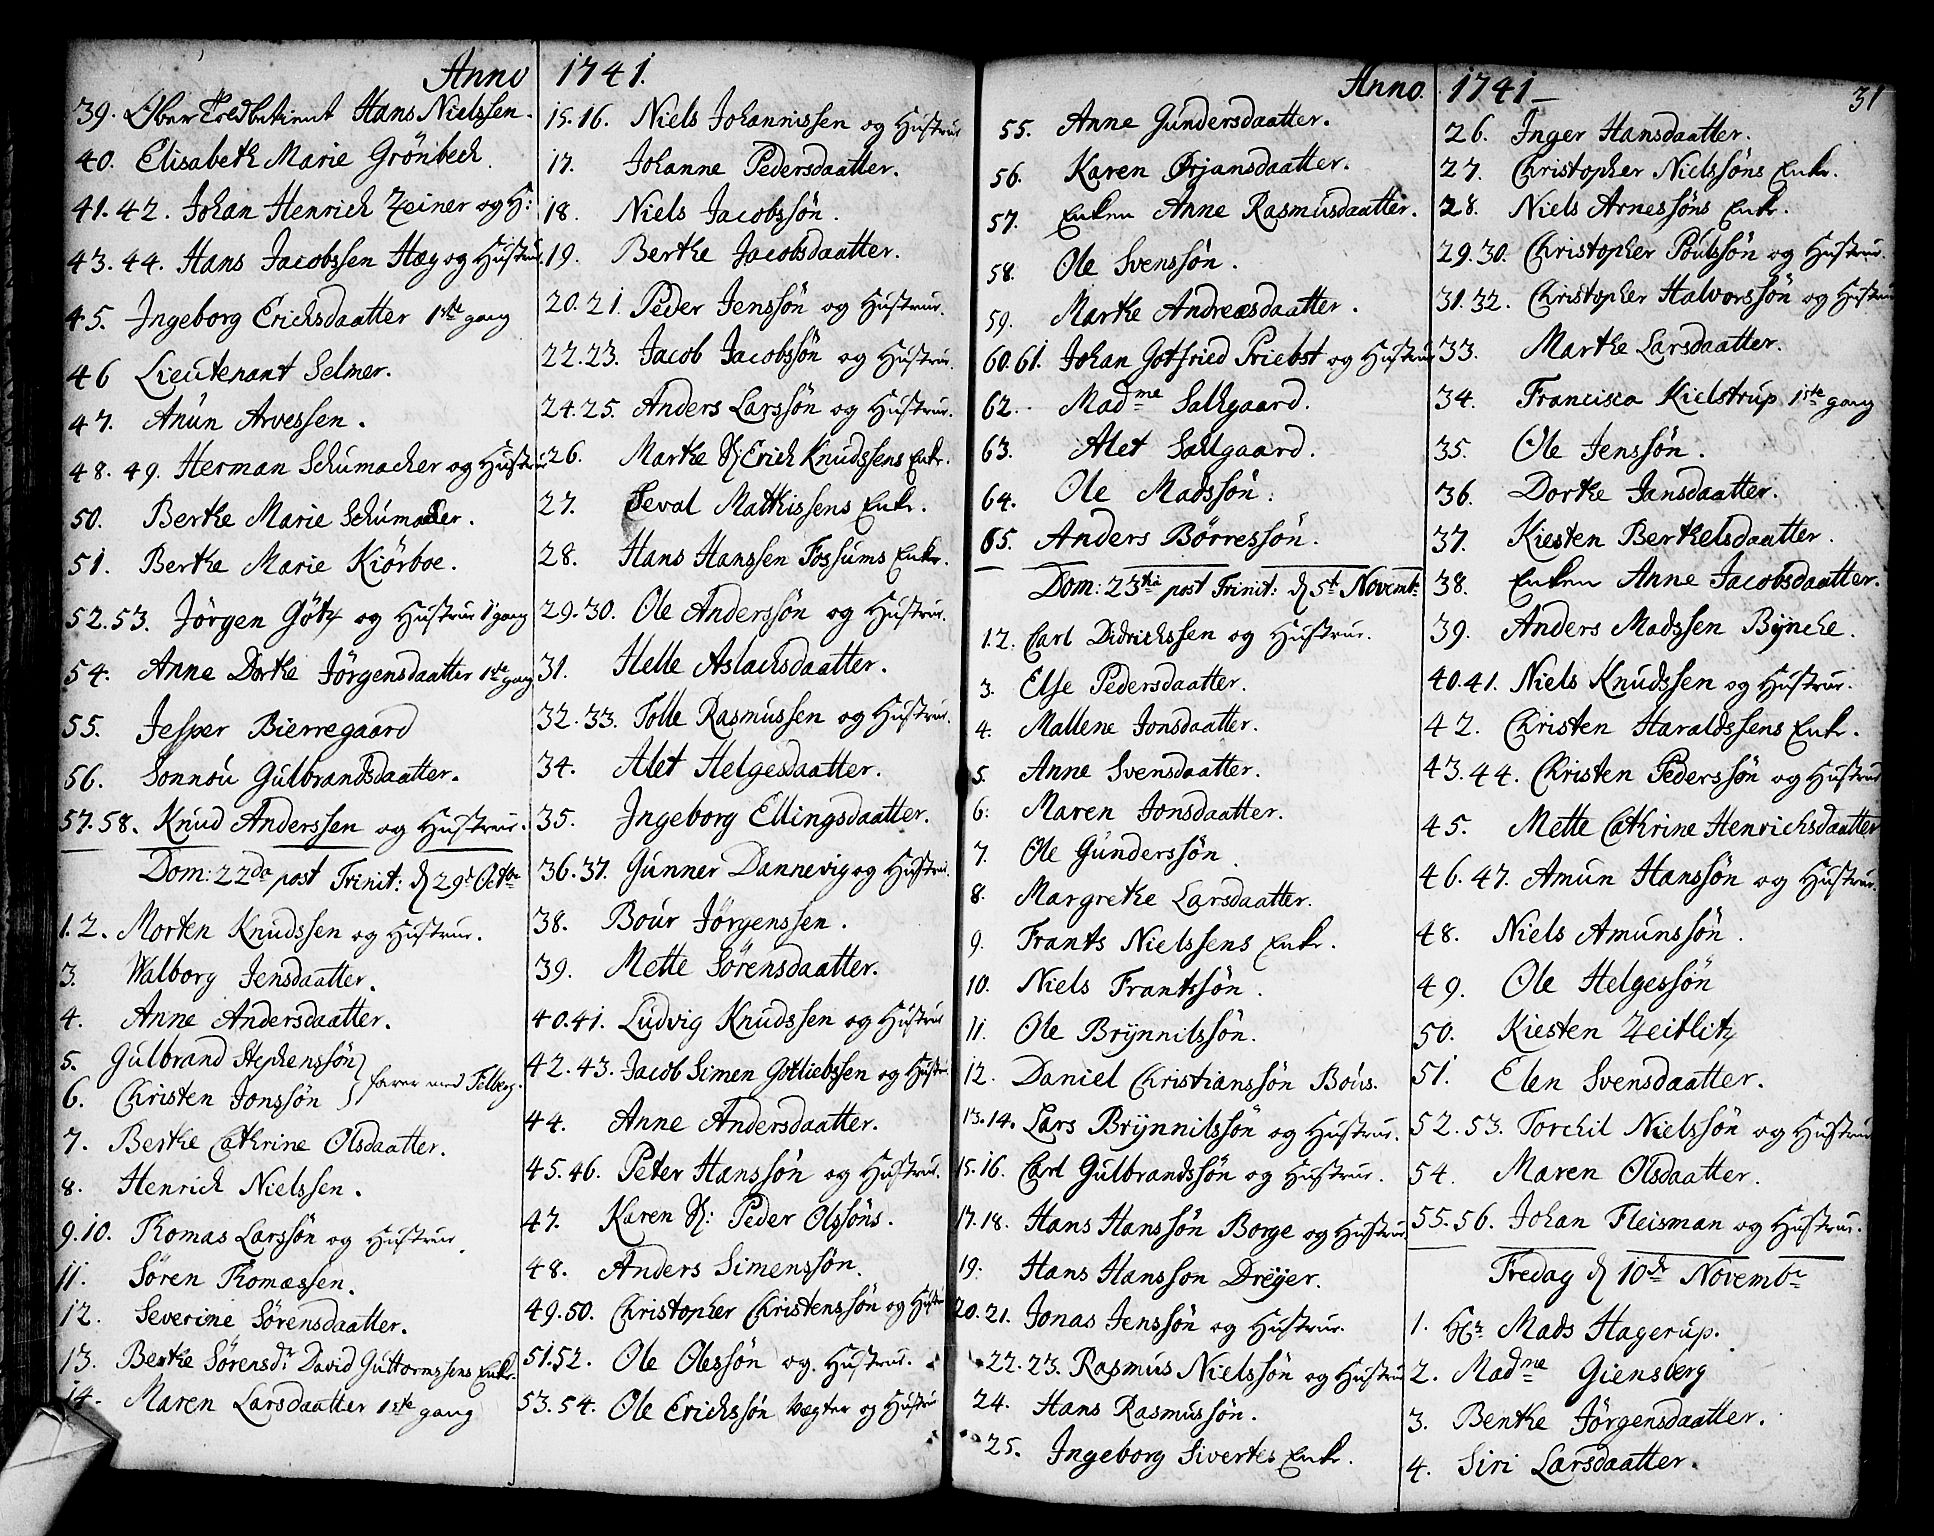 Anno 1741.
39. Ober Toldbetient Hans Nielssen.
40. Elisabeth Marie Grönbech.
41. 42. Johan Henrich Zeiner og H:
43. 44. Hans Jacobssen Hæg og Hustru.
45. Ingeborg Erichsdaatter 1ste gang
46 Lieutenant Selmer.
47. Anün Arvessen.
48. 49. Herman Schumacher og Hustru
50. Berthe Marie Schumacher.
51. Berthe Marie Kiörboe.
52. 53. Jörgen Götz og Hustrue 1 gang
54. Anne Dorthe Jörgensdaatter 1ste gang
55. Jesper Bierregaard
56. Sonnou Gulbrandsdaatter.
57. 58. Knud Anderssen og Hustrue.
Dom: 22da post Trinit: d 29d Octbr
1. 2. Morten Knudssen og Hustrue.
3. Walborg Jensdaatter.
4. Anne Andersdaatter.
5. Gulbrand Stephenssön
6. Christen Jonssön } farer med Filberg.
7. Berthe Cathrine Olsdaatter.
8. Henrich Nielssen.
9. 10. Thomas Larssön og Hustrue.
11. Sören Thomæssen.
12. Severine Sörensdaatter.
13. Benthe Sörensdr. David Guttormssens Enke.
14. Maren Larsdaatter 1ste gang
15. 16. Niels Johannissen og Hustrue
17. Johanne Pedersdaatter.
18. Niels Jacobssön.
19. Berthe Jacobsdaatter.
20. 21. Peder Jenssön og Hustrue.
22. 23. Jacob Jacobssön og Hustrue.
24. 25. Anders Larssön og Hustrue.
26. Marthe Sl: Erich Knudssens Enke.
27. Seval Mathissens Enke.
28. Hans Hanssen Fossums Enke.
29. 30. Ole Anderssön og Hustrue.
31. Helle Aslachsdaatter.
32. 33. Tolle Rasmussen og Hustrue.
34. Alet Helgesdaatter.
35. Ingeborg Ellingsdaatter.
36. 37. Gunner Dannevig og Hustru.
38. Bour Jörgenssen.
39. Mette Sörensdaatter.
40. 41. Ludvig Knudssen og Hustrue
42. 43. Jacob Simen Gotliebssen og Hustr.
44. Anne Andersdaatter.
45. 46. Peter Hanssön og Hustrue.
47. Karen Sl: Peder Olssöns.
48. Anders Simenssön.
49. 50. Christopher Christenssön og Hustr
51. 52. Ole Olessön og. Hustrue.
53. 54. Ole Erichssön Vægter og Hustru
Anno. 1741 31
55. Anne Gundersdaatter.
56. Karen Ørjansdaatter.
57. Enken Anne Rasmusdaatter.
58. Ole Svenssön.
59. Marthe Andreæsdaatter.
60. 61. Johan Gotfried Priebst og Hustrue
62. Madme Salhgaard.
63. Alet Salhgaard.
64. Ole Madssön.
65. Anders Börressön.
Dom: 23tia post Trinit: d 5t Novembr
1. 2. Carl Didrichssen og Hustrue.
3. Else Pedersdaatter.
4. Mallene Jonsdaatter.
5. Anne Svensdaatter.
6. Maren Jonsdaatter.
7. Ole Gunderssön.
8. Margrethe Larsdaatter.
9. Frants Nielssens Enke.
10. Niels Frantssön.
11. Ole Brynnilssön.
12. Daniel Christianssön Bous.
13. 14. Lars Brynnilssön og Hustrue.
15. 16. Carl Gulbrandssön og Hustrue.
17. 18. Hans Hanssön Borge og Hustrue.
19. Hans Hansson Dreÿer.
20. 21. Jonas Jenssön og Hustrue.
22. 23. Rasmus Nielssön og Hustrue
24. Hans Rasmussön.
25. Ingeborg Sivertes Enke.
26. Inger Hansdaatter.
27. Christopher Nielssöns Enke.
28. Niels Arnessöns Enke.
29. 30. Christopher Poulssön og Hustrue.
31. 32. Christopher Halvorssön og Hustrue
33. Marthe Larsdaatter.
34. Francisca Kielstrup 1ste gang
35. Ole Jenssön.
36. Dorthe Jansdaatter.
37. Kiesten Berthelsdaatter.
38. Enken Anne Jacobsdaatter.
39. Anders Madssen Bÿnche.
40. 41. Niels Knudssen og Hustrue.
42. Christen Haraldssens Enke.
43. 44. Christen Pederssön og Hustrue
45. Mette Cathrine Henrichsdaatter
46. 47. Amun Hanssön og Hustrue.
48. Niels Amunssön.
49. Ole Helgessön
50. Kiesten Zeitlitz
51. Elen Svensdaatter.
52. 53. Torchil Nielssön og Hustrue
54. Maren Olsdaatter.
55. 56. Johan Fleisman og Hustrue.
Fredag d 10de Novembr
1. Hr. Mads Hagerup.
2. Madme Giensberg
3. Benthe Jörgensdaatter.
4. Siri Larsdaatter.